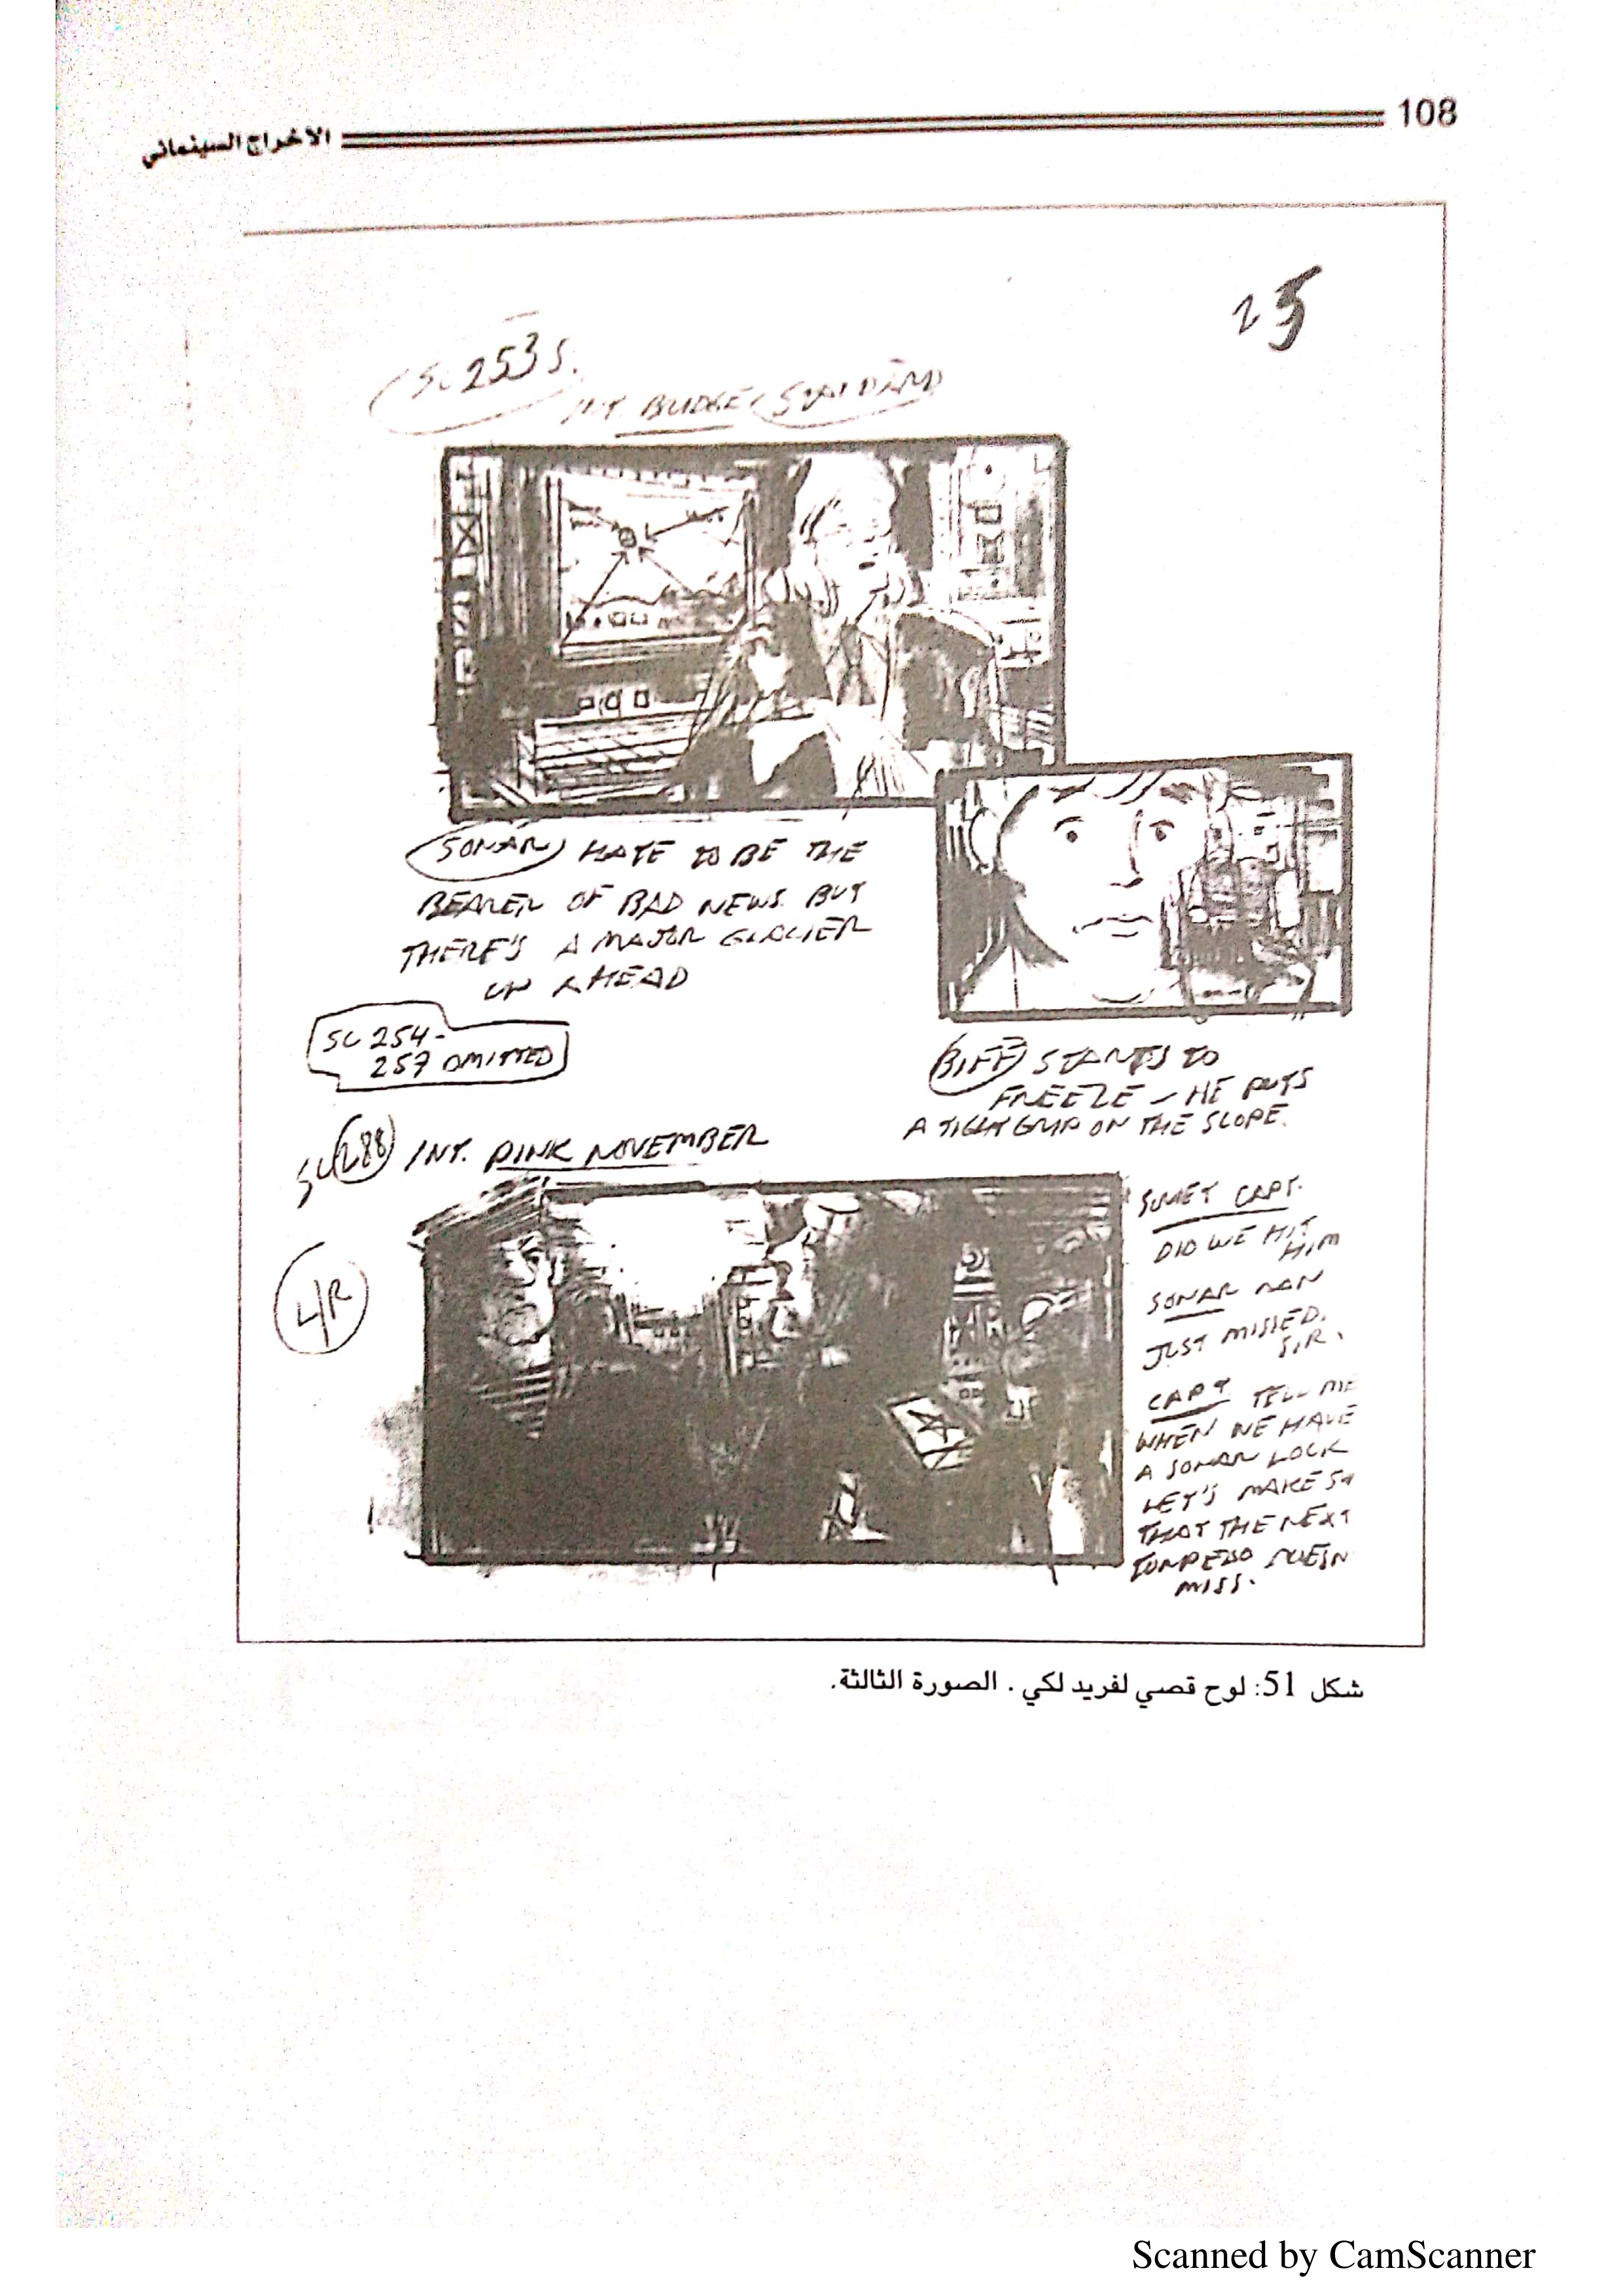 108
الاخراج السينمائي
25
SC 253 S.
INT BRIDGE
SONAR HATE TO BE THE
BEARER OF BAD NEWS. BUT
THERE'S A MAJOR GLACIER
UP AHEAD
SC 254-
257 OMITTED
BIFF STARTS TO
FREEZE – HE PUTS
A TIGHT GRIP ON THE SCOPE.
SC 288 INT. PINK NOVEMBER
SOVIET CAPT.
DID WE HIT
HIM
SONAR MAN
JUST MISSED.
SIR.
CAPT TELL ME
WHEN WE HAVE
A SONAR LOCK
LET'S MAKE
THAT THE NEXT
TORPEDO DOESN
MISS.
شكل 51: لوح قصي لفريد لكي . الصورة الثالثة.
Scanned by CamScanner